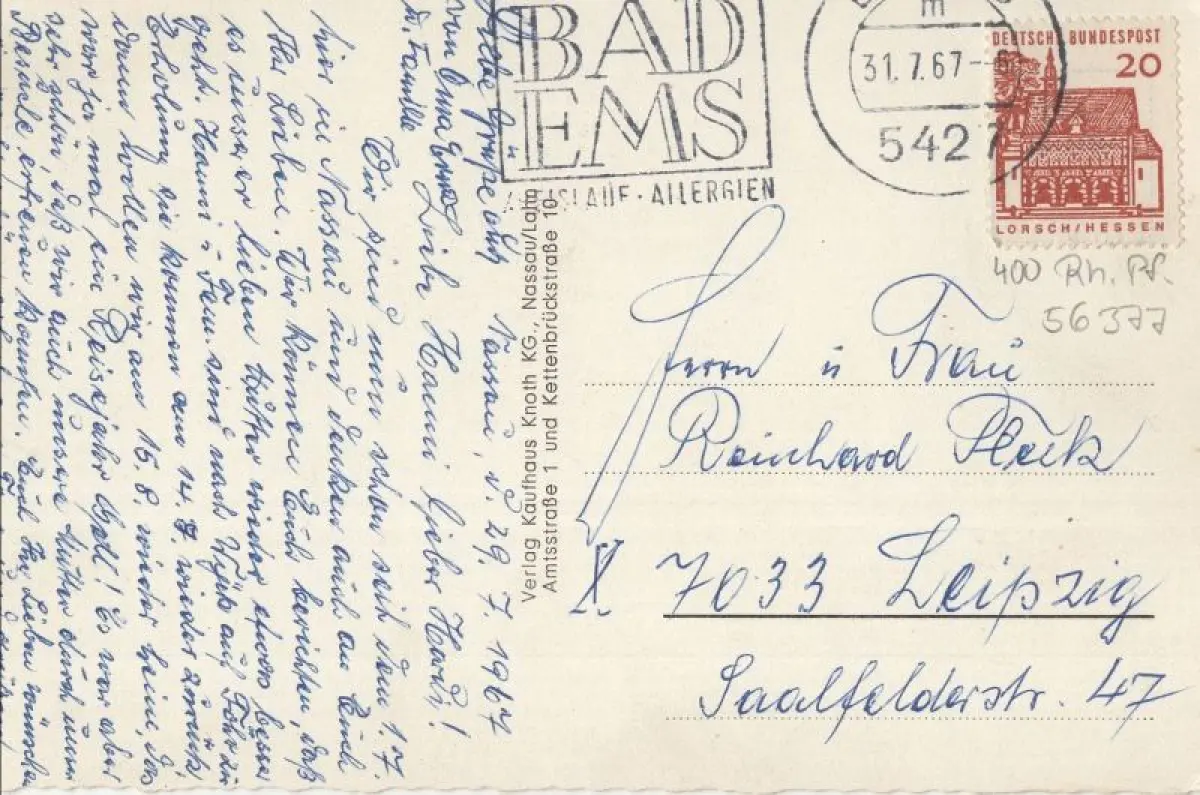 BAD
EMS
KREISLAUF · ALLERGIEN
31.7.67
5427
DEUTSCHE BUNDESPOST
20
LORSCH/HESSEN
400 Rh. Pf.
56377
Herrn u Frau
Reinhard Fleck
X 7033 Leipzig
Saalfelderstr. 47
Verlag Kaufhaus Knoth KG., Nassau/Lahn
Amtsstraße 1 und Kettenbrückstraße 10
Nassau, d. 29. 7. 1967
Liebe Hanni, lieber Hardi!
Wir sind nun schon seit dem 1.7.
hier in Nassau und denken auch an Euch
Ihr Lieben. Wir können Euch berichten, daß
es unserer lieben Mutter wieder etwas besser
geht. Hanni u. Fam. sind nach Wyk auf Föhr zur
Erholung sie kommen am 14. 8. wieder zurück,
dann wollen wir am 15. 8. wieder heim, das
war für mal ein Reisejahr Gell! Es war aber
sehr schön, daß wir auch unsere Mutter durch
Besuche erfreuen konnten. Euch Ihr Lieben wünschen
Viele Grüße auch
von Oma
u. Familie